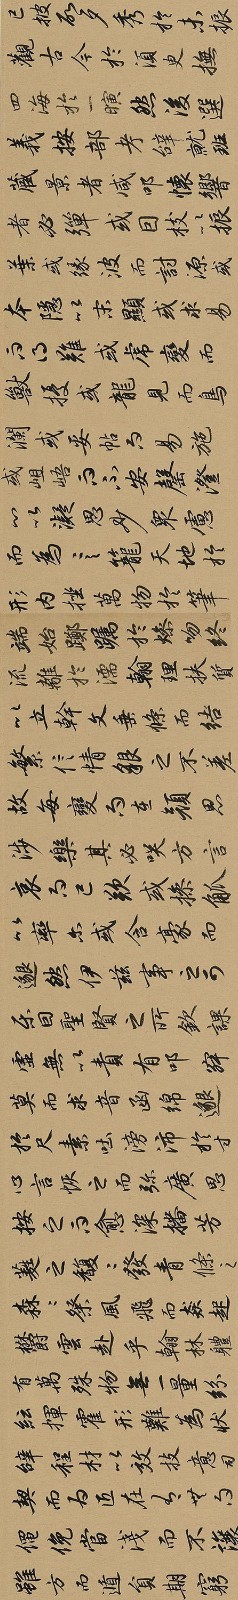 已披啟夕秀於未振
觀古今於須臾撫
四海於一瞬然後選
義按部考辭就班
藏景者咸叩懷響
者必彈或因枝以振
葉或緣波而討源或
本隱以末顯或求易
而得難或虎變而
獸擾或龍見而鳥
瀾或妥帖而易施
或岨峿而不安罄澄
心以凝思妙眾慮
而為言籠天地於
形內挫萬物於筆
端始躑躅於燥吻終
流離於濡翰理扶質
以立幹文垂條而結
繁信情貌之不差
故每變而在顏思
涉樂其必笑方言
哀而已歎或操觚
以率尓或含毫而
邈然伊茲事之可
樂固聖賢之所欽課
虛無以責有叩寂
莫而求音函綿邈
於尺素吐滂沛於寸
心言恢之而弥廣思
按之而愈深播芳
蕤之馥〻發青條之
森〻粲風飛而猋起
欝雲赴乎翰林體
有萬殊物無一量紛
紜揮霍形難為狀
辭程材以效技意司
契而為匠在有無而
僶俛當淺而不讓
雖方而遁員期窮